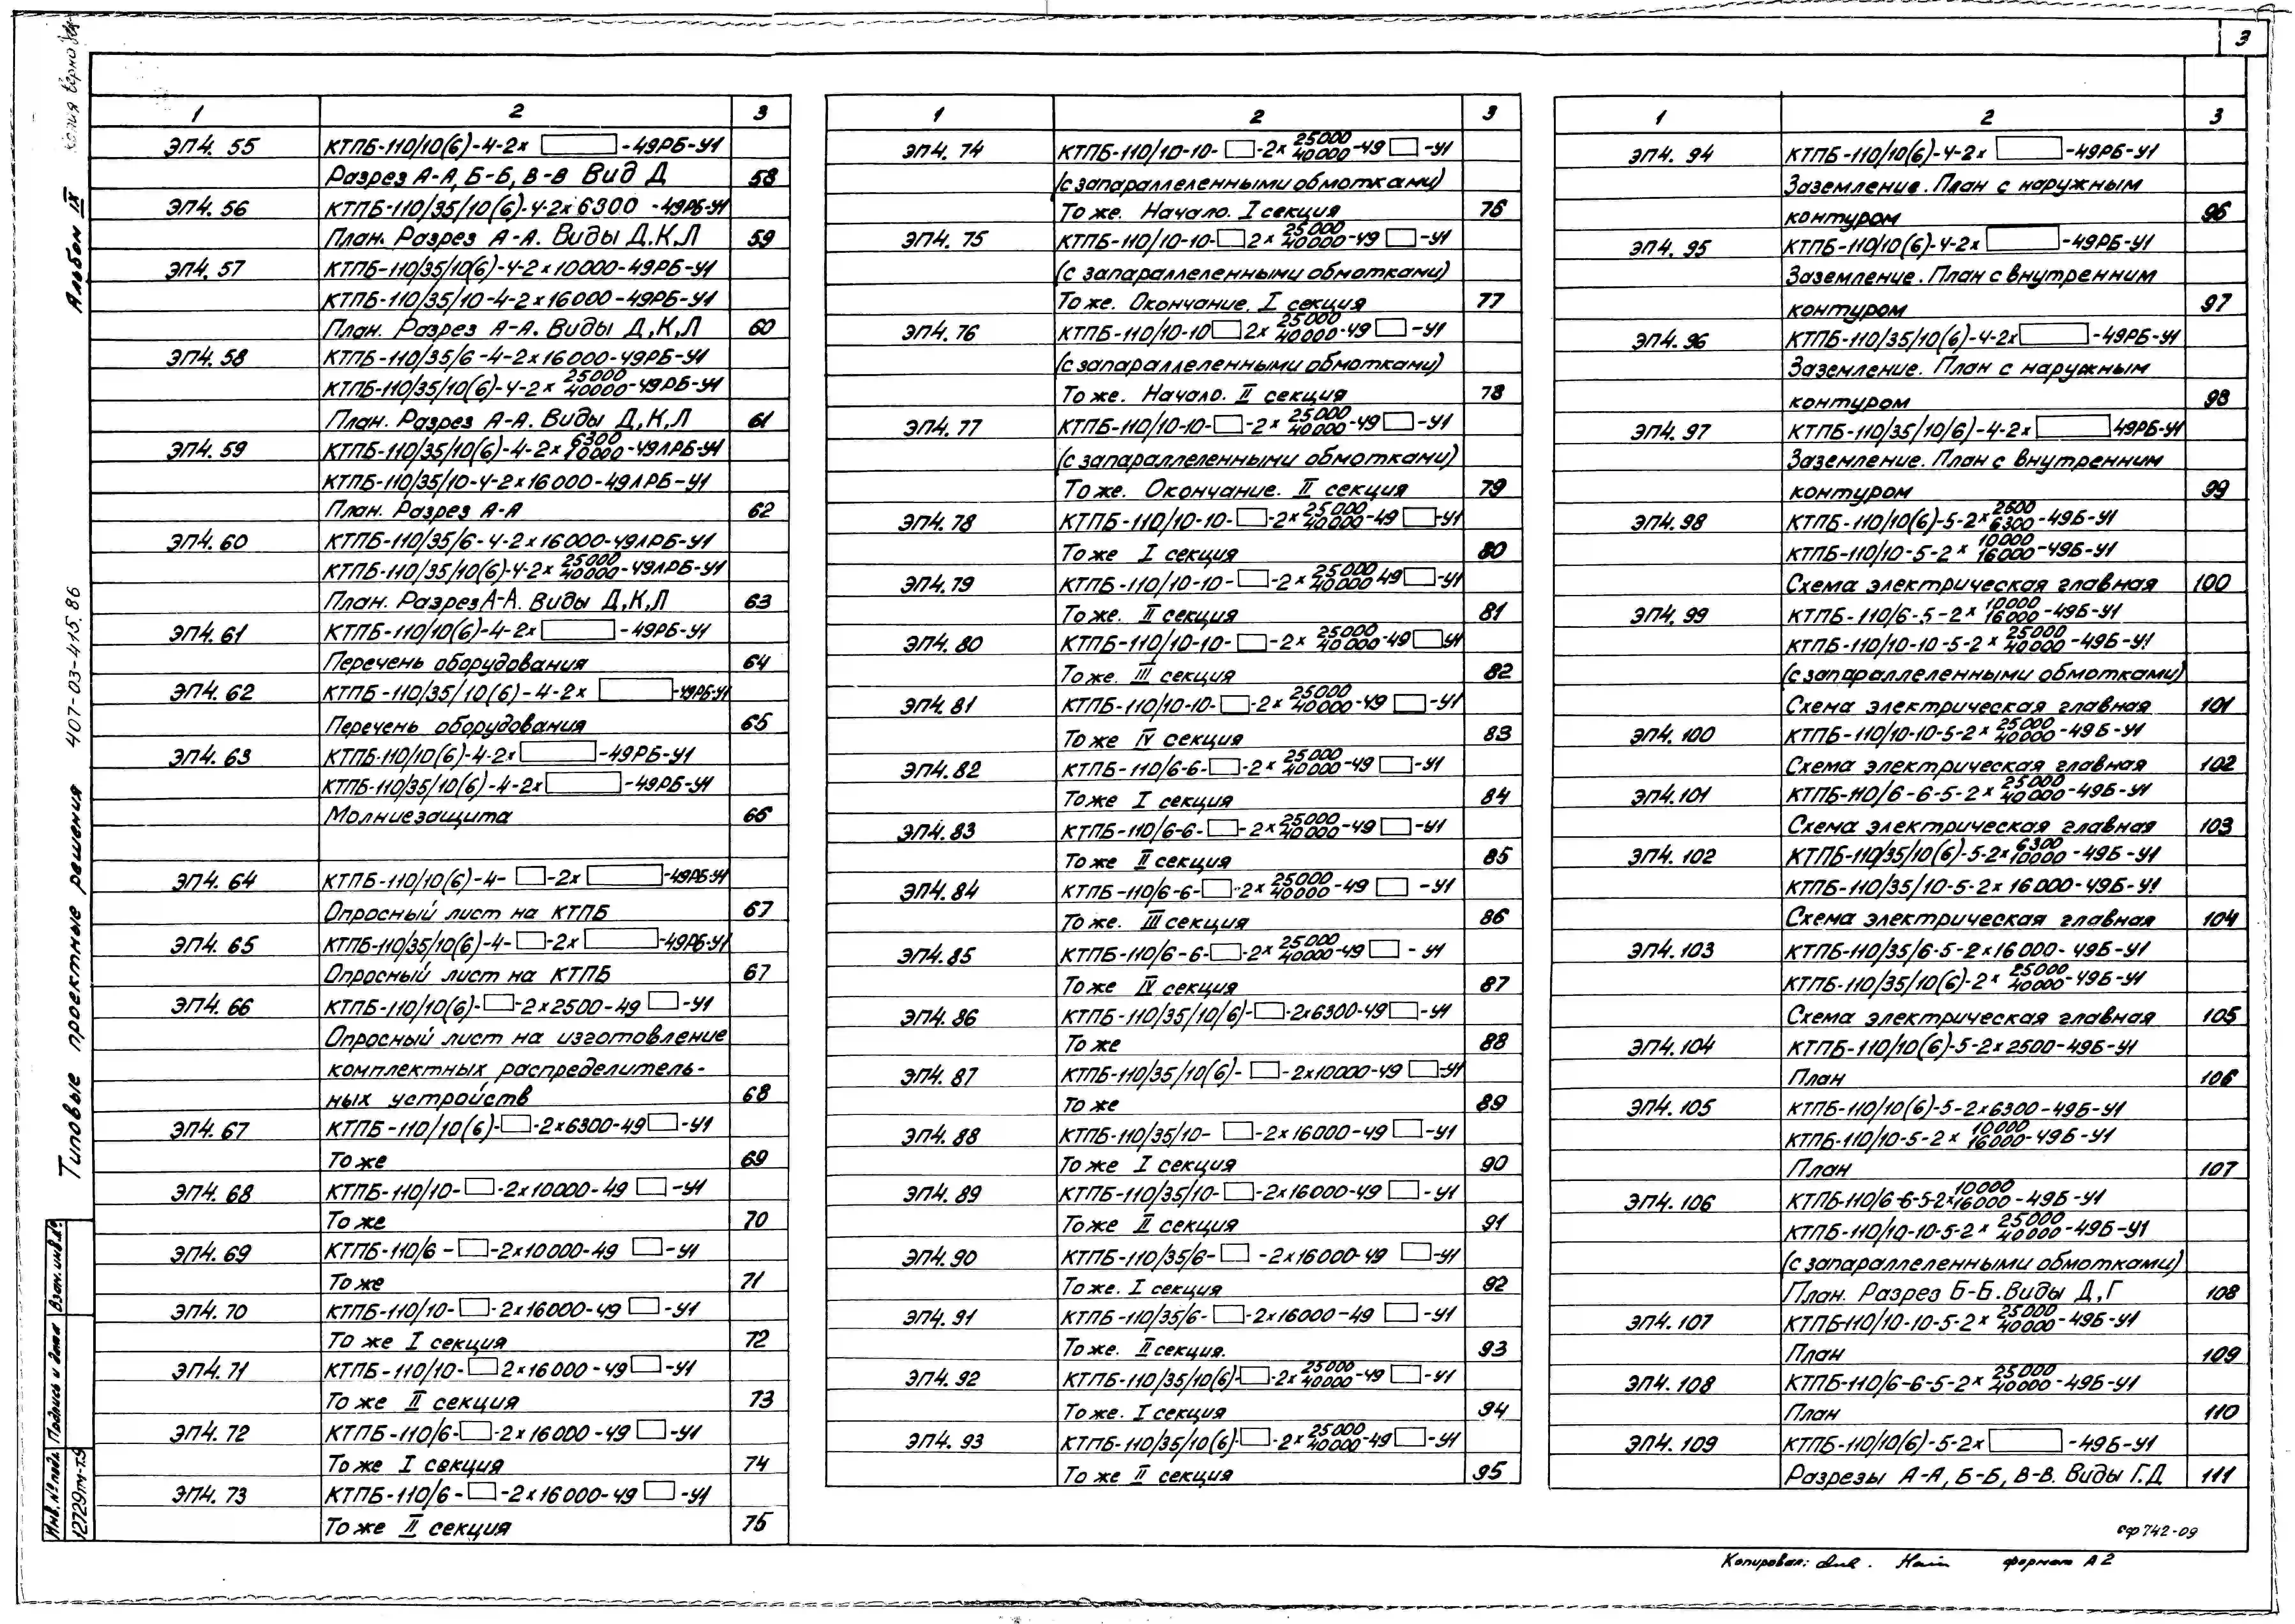 3
Копия верно
Альбом IX
Типовые проектные решения 407-03-415.86
1 2 3
ЭП4. 55 КТПБ-110/10(6)-4-2х □ -49РБ-У1
Разрез А-А, Б-Б, В-В Вид Д 58
ЭП4. 56 КТПБ-110/35/10(6)-4-2х6300-49РБ-У1
План. Разрез А-А. Виды Д.К,Л 59
ЭП4. 57 КТПБ-110/35/10(6)-4-2х10000-49РБ-У1
КТПБ-110/35/10-4-2х16000-49РБ-У1
План. Разрез А-А. Виды Д,К,Л 60
ЭП4. 58 КТПБ-110/35/6-4-2х16000-49РБ-У1
КТПБ-110/35/10(6)-4-2х 25000/40000-49РБ-У1
План. Разрез А-А. Виды Д,К,Л 61
ЭП4. 59 КТПБ-110/35/10(6)-4-2х 6300/10000-49ЛРБ-У1
КТПБ-110/35/10-4-2х16000-49ЛРБ-У1
План. Разрез А-А 62
ЭП4. 60 КТПБ-110/35/6-4-2х16000-49ЛРБ-У1
КТПБ-110/35/10(6)-4-2х 25000/40000-49ЛРБ-У1
План. Разрез А-А. Виды Д,К,Л 63
ЭП4. 61 КТПБ-110/10(6)-4-2х □ -49РБ-У1
Перечень оборудования 64
ЭП4. 62 КТПБ-110/35/10(6)-4-2х □ -49РБ-У1
Перечень оборудования 65
ЭП4. 63 КТПБ-110/10(6)-4-2х □ -49РБ-У1
КТПБ-110/35/10(6)-4-2х □ -49РБ-У1
Молниезащита 66
ЭП4. 64 КТПБ-110/10(6)-4- □ -2х □ -49РБ-У1
Опросный лист на КТПБ 67
ЭП4. 65 КТПБ-110/35/10(6)-4- □ -2х □ -49РБ-У1
Опросный лист на КТПБ 67
ЭП4. 66 КТПБ-110/10(6)- □ -2х2500-49 □ -У1
Опросный лист на изготовление
комплектных распределитель-
ных устройств 68
ЭП4. 67 КТПБ-110/10(6)- □ -2х6300-49 □ -У1
То же 69
ЭП4. 68 КТПБ-110/10- □ -2х10000-49 □ -У1
То же 70
ЭП4. 69 КТПБ-110/6- □ -2х10000-49 □ -У1
То же 71
ЭП4. 70 КТПБ-110/10- □ -2х16000-49 □ -У1
То же I секция 72
ЭП4. 71 КТПБ-110/10- □ 2х16000-49 □ -У1
То же II секция 73
ЭП4. 72 КТПБ-110/6- □ -2х16000-49 □ -У1
То же I секция 74
ЭП4. 73 КТПБ-110/6- □ -2х16000-49 □ -У1
То же II секция 75
1 2 3
ЭП4. 74 КТПБ-110/10-10- □ -2х 25000/40000-49 □ -У1
(с запараллеленными обмотками)
То же. Начало. I секция 76
ЭП4. 75 КТПБ-110/10-10- □ 2х 25000/40000-49 □ -У1
(с запараллеленными обмотками)
То же. Окончание. I секция 77
ЭП4. 76 КТПБ-110/10-10 □ 2х 25000/40000-49 □ -У1
(с запараллеленными обмотками)
То же. Начало. II секция 78
ЭП4. 77 КТПБ-110/10-10- □ -2х 25000/40000-49 □ -У1
(с запараллеленными обмотками)
То же. Окончание. II секция 79
ЭП4. 78 КТПБ-110/10-10- □ -2х 25000/40000-49 □ -У1
То же I секция 80
ЭП4. 79 КТПБ-110/10-10- □ -2х 25000/40000 49 □ -У1
То же. II секция 81
ЭП4. 80 КТПБ-110/10-10- □ -2х 25000/40000-49 □ У1
То же. III секция 82
ЭП4. 81 КТПБ-110/10-10- □ -2х 25000/40000-49 □ -У1
То же IV секция 83
ЭП4. 82 КТПБ-110/6-6- □ -2х 25000/40000-49 □ -У1
То же I секция 84
ЭП4. 83 КТПБ-110/6-6- □ -2х 25000/40000-49 □ -У1
То же II секция 85
ЭП4. 84 КТПБ-110/6-6- □ -2х 25000/40000-49 □ -У1
То же. III секция 86
ЭП4. 85 КТПБ-110/6-6- □ -2х 25000/40000-49 □ -У1
То же IV секция 87
ЭП4. 86 КТПБ-110/35/10/6)- □ -2х6300-49 □ -У1
То же 88
ЭП4. 87 КТПБ-110/35/10(6)- □ -2х10000-49 □ -У1
То же 89
ЭП4. 88 КТПБ-110/35/10- □ -2х16000-49 □ -У1
То же I секция 90
ЭП4. 89 КТПБ-110/35/10- □ -2х16000-49 □ -У1
То же II секция 91
ЭП4. 90 КТПБ-110/35/6- □ -2х16000-49 □ -У1
То же. I секция 92
ЭП4. 91 КТПБ-110/35/6- □ -2х16000-49 □ -У1
То же. II секция. 93
ЭП4. 92 КТПБ-110/35/10(6)- □ -2х 25000/40000-49 □ -У1
То же. I секция 94
ЭП4. 93 КТПБ-110/35/10(6)- □ -2х 25000/40000-49 □ -У1
То же II секция 95
1 2 3
ЭП4. 94 КТПБ-110/10(6)-4-2х □ -49РБ-У1
Заземление. План с наружным
контуром 96
ЭП4. 95 КТПБ-110/10(6)-4-2х □ -49РБ-У1
Заземление. План с внутренним
контуром 97
ЭП4. 96 КТПБ-110/35/10(6)-4-2х □ -49РБ-У1
Заземление. План с наружным
контуром 98
ЭП4. 97 КТПБ-110/35/10/6)-4-2х □ 49РБ-У1
Заземление. План с внутренним
контуром 99
ЭП4. 98 КТПБ-110/10(6)-5-2х 2500/6300-49Б-У1
КТПБ-110/10-5-2х 10000/16000-49Б-У1
Схема электрическая главная 100
ЭП4. 99 КТПБ-110/6-5-2х 10000/16000-49Б-У1
КТПБ-110/10-10-5-2х 25000/40000-49Б-У1
(с запараллеленными обмотками)
Схема электрическая главная 101
ЭП4. 100 КТПБ-110/10-10-5-2х 25000/40000-49Б-У1
Схема электрическая главная 102
ЭП4. 101 КТПБ-110/6-6-5-2х 25000/40000-49Б-У1
Схема электрическая главная 103
ЭП4. 102 КТПБ-110/35/10(6)-5-2х 6300/10000-49Б-У1
КТПБ-110/35/10-5-2х16000-49Б-У1
Схема электрическая главная 104
ЭП4. 103 КТПБ-110/35/6-5-2х16000-49Б-У1
КТПБ-110/35/10(6)-2х 25000/40000-49Б-У1
Схема электрическая главная 105
ЭП4. 104 КТПБ-110/10(6)-5-2х2500-49Б-У1
План 106
ЭП4. 105 КТПБ-110/10(6)-5-2х6300-49Б-У1
КТПБ-110/10-5-2х 10000/16000-49Б-У1
План 107
ЭП4. 106 КТПБ-110/6-6-5-2х 10000/16000-49Б-У1
КТПБ-110/10-10-5-2х 25000/40000-49Б-У1
(с запараллеленными обмотками)
План. Разрез Б-Б. Виды Д,Г 108
ЭП4. 107 КТПБ-110/10-10-5-2х 25000/40000-49Б-У1
План 109
ЭП4. 108 КТПБ-110/6-6-5-2х 25000/40000-49Б-У1
План 110
ЭП4. 109 КТПБ-110/10(6)-5-2х □ -49Б-У1
Разрезы А-А, Б-Б, В-В. Виды Г.Д 111
Инв.№подл. Подпись и дата Взам.инв.№
12729тм-т9
сф742-09
Копировал: формат А2